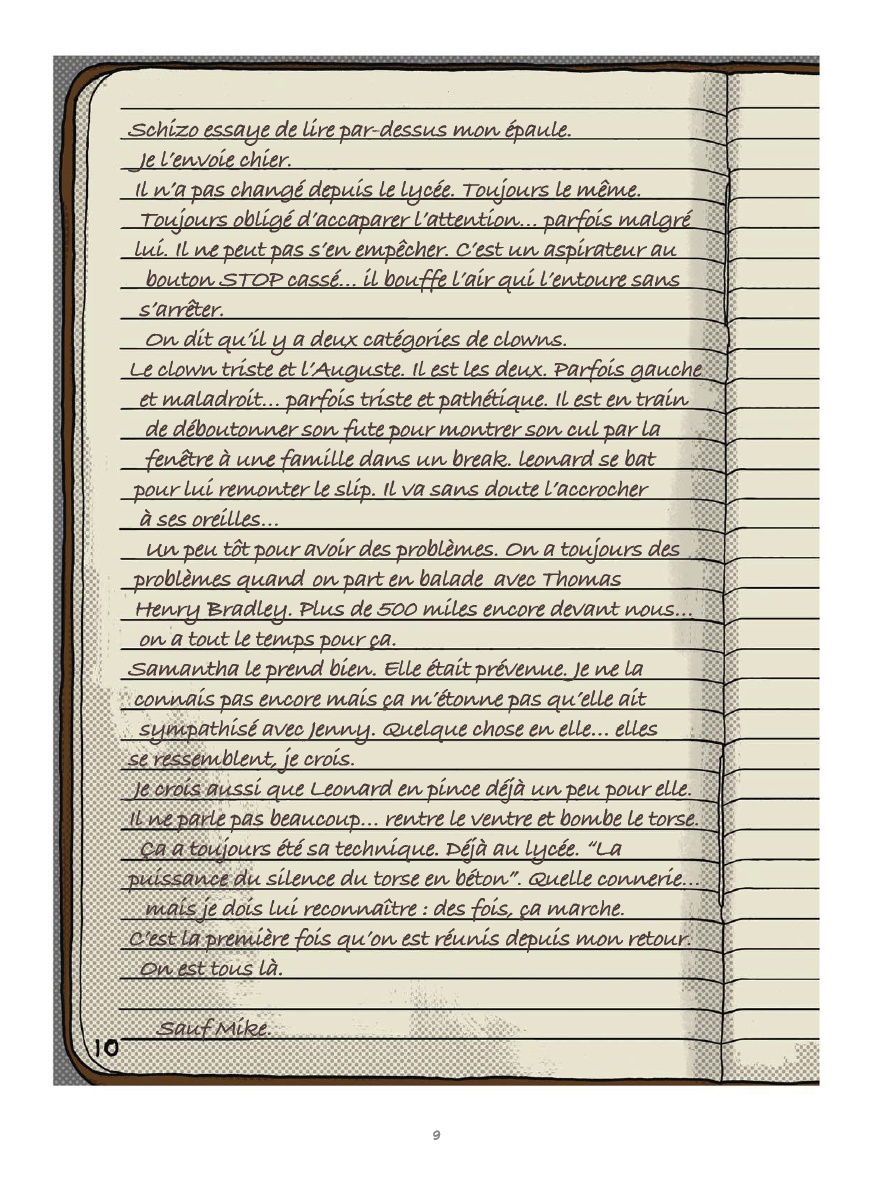 Schizo essaye de lire par-dessus mon épaule.
Je l'envoie chier.
Il n'a pas changé depuis le lycée. Toujours le même.
Toujours obligé d'accaparer l'attention... parfois malgré
lui. Il ne peut pas s'en empêcher. C'est un aspirateur au
bouton STOP cassé... il bouffe l'air qui l'entoure sans
s'arrêter.
On dit qu'il y a deux catégories de clowns.
Le clown triste et l'Auguste. Il est les deux. Parfois gauche
et maladroit... parfois triste et pathétique. Il est en train
de déboutonner son fute pour montrer son cul par la
fenêtre à une famille dans un break. leonard se bat
pour lui remonter le slip. Il va sans doute l'accrocher
à ses oreilles...
Un peu tôt pour avoir des problèmes. On a toujours des
problèmes quand on part en balade avec Thomas
Henry Bradley. Plus de 500 miles encore devant nous...
on a tout le temps pour ça.
Samantha le prend bien. Elle était prévenue. Je ne la
connais pas encore mais ça m'étonne pas qu'elle ait
sympathisé avec Jenny. Quelque chose en elle... elles
se ressemblent, je crois.
Je crois aussi que Leonard en pince déjà un peu pour elle.
Il ne parle pas beaucoup... rentre le ventre et bombe le torse.
Ça a toujours été sa technique. Déjà au lycée. "La
puissance du silence du torse en béton". Quelle connerie...
mais je dois lui reconnaître : des fois, ça marche.
C'est la première fois qu'on est réunis depuis mon retour.
On est tous là.
Sauf Mike.
10
9